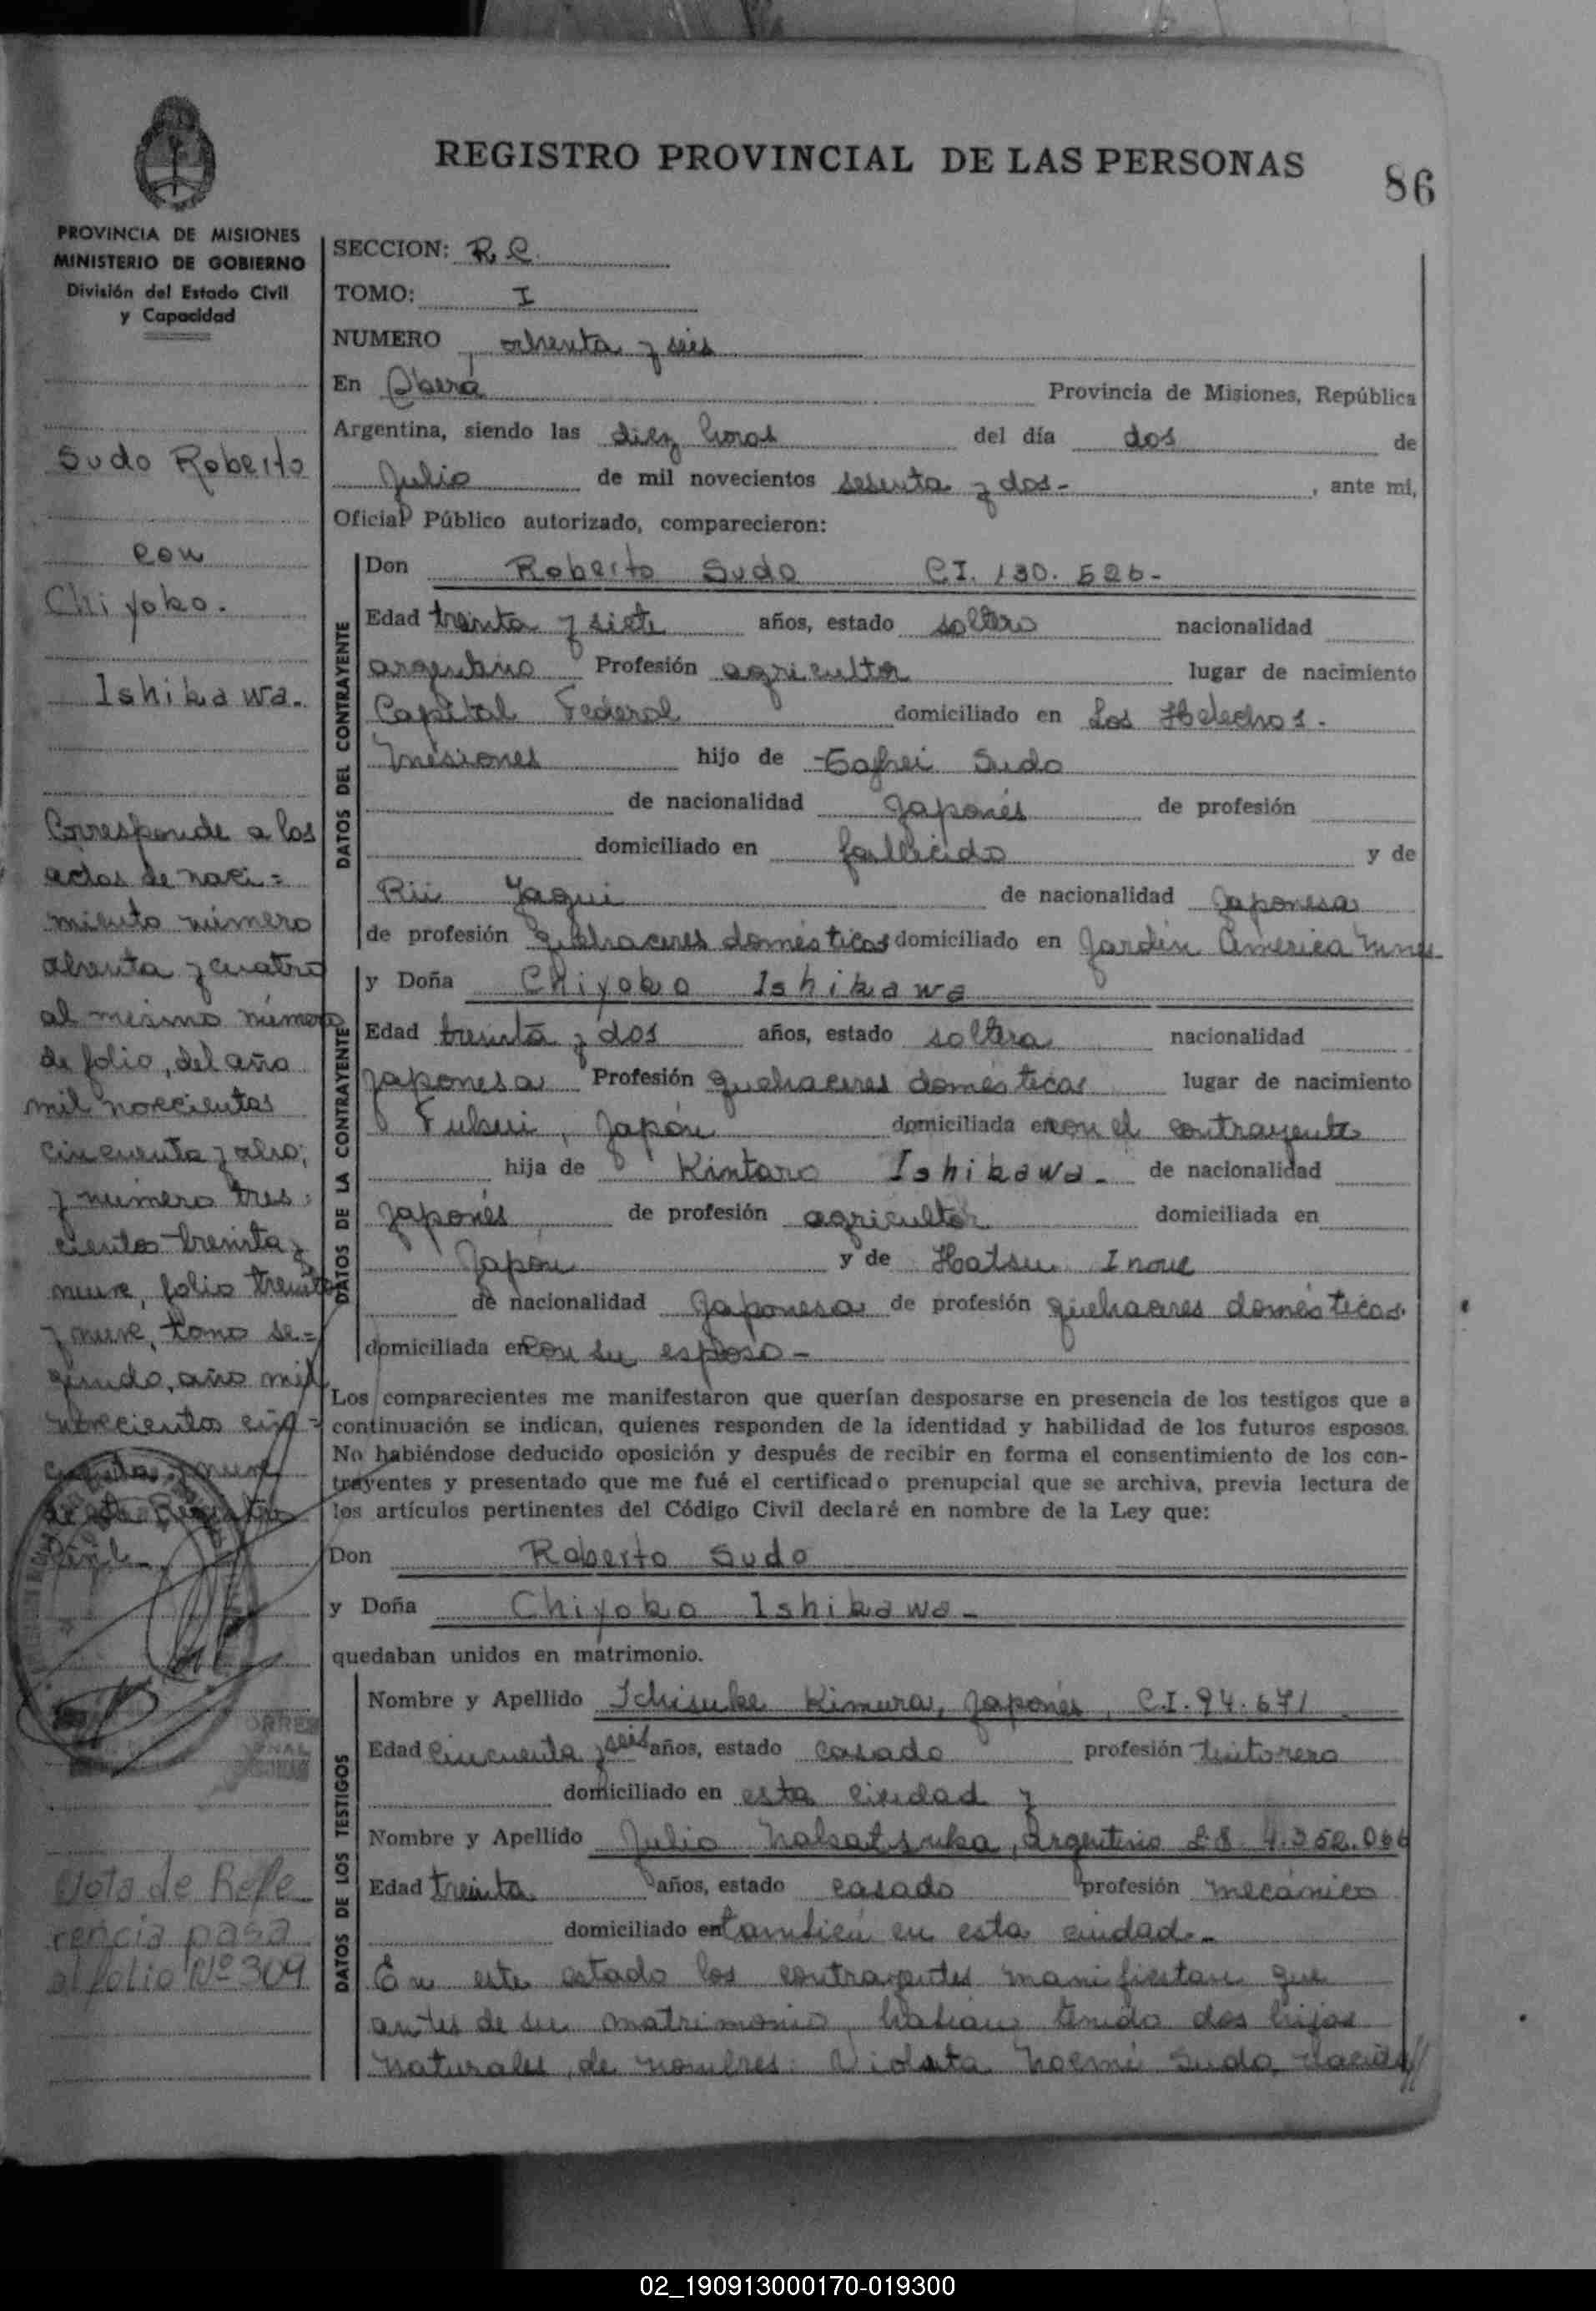 REGISTRO PROVINCIAL DE LAS PERSONAS
86
PROVINCIA DE MISIONES
MINISTERIO DE GOBIERNO
División del Estado Civil
y Capacidad
Sudo Roberto
con
Chiyoko.
Ishikawa.
Corresponde a los
actas de naci=
miento número
ochenta y cuatro
al mismo número
de folio, del año
mil novecientos
cincuenta y ocho;
y número tres=
cientos treinta y
nueve, folio treinta
y nueve, tomo se=
gundo, año mil
novecientos cin=
cuenta y nueve
de este Registro
Civil.
Nota de Refe
rencia pasa
al folio Nº 309
SECCION: R. C.
TOMO: I
NUMERO ochenta y seis
En Oberá Provincia de Misiones, República
Argentina, siendo las diez horas del día dos de
Julio de mil novecientos sesenta y dos- , ante mi,
Oficial Público autorizado, comparecieron:
DATOS DEL CONTRAYENTE
Don Roberto Sudo C.I. 130.526-
Edad treinta y siete años, estado soltero nacionalidad
argentino Profesión agricultor lugar de nacimiento
Capital Federal domiciliado en Los Helechos.
Misiones hijo de Sudo
de nacionalidad Japonés de profesión
domiciliado en fallecido y de
Rii Yagui de nacionalidad Japonesa
de profesión q. ehaceres domésticos domiciliado en Jardín America
DATOS DE LA CONTRAYENTE
y Doña Chiyoko Ishikawa
Edad treinta y dos años, estado soltera nacionalidad
Japonesa Profesión quehaceres domésticos lugar de nacimiento
Fukui, Japón domiciliada en con el contrayente
hija de Kintaro Ishikawa. de nacionalidad
Japonés de profesión agricultor domiciliada en
Japón y de Hatsu Inoue
de nacionalidad Japonesa de profesión quehaceres domésticos.
domiciliada en con su esposo-
Los comparecientes me manifestaron que querían desposarse en presencia de los testigos que a
continuación se indican, quienes responden de la identidad y habilidad de los futuros esposos.
No habiéndose deducido oposición y después de recibir en forma el consentimiento de los con-
trayentes y presentado que me fué el certificado prenupcial que se archiva, previa lectura de
los artículos pertinentes del Código Civil declaré en nombre de la Ley que:
Don Roberto Sudo
y Doña Chiyoko Ishikawa-
quedaban unidos en matrimonio.
DATOS DE LOS TESTIGOS
Nombre y Apellido Ichisuke Kimura, Japonés, C.I. 94.671
Edad cincuenta y seis años, estado casado profesión tintorero
domiciliado en esta ciudad y
Nombre y Apellido Julio Nakatsuka, argentino 4.352.066
Edad treinta años, estado casado profesión mecánico
domiciliado en también en esta ciudad.-
En este estado los contrayentes manifiestan que
antes de su matrimonio, habían tenido dos hijos
naturales, de nombres: Violeta Noemí Sudo, nacida//
02_190913000170-019300